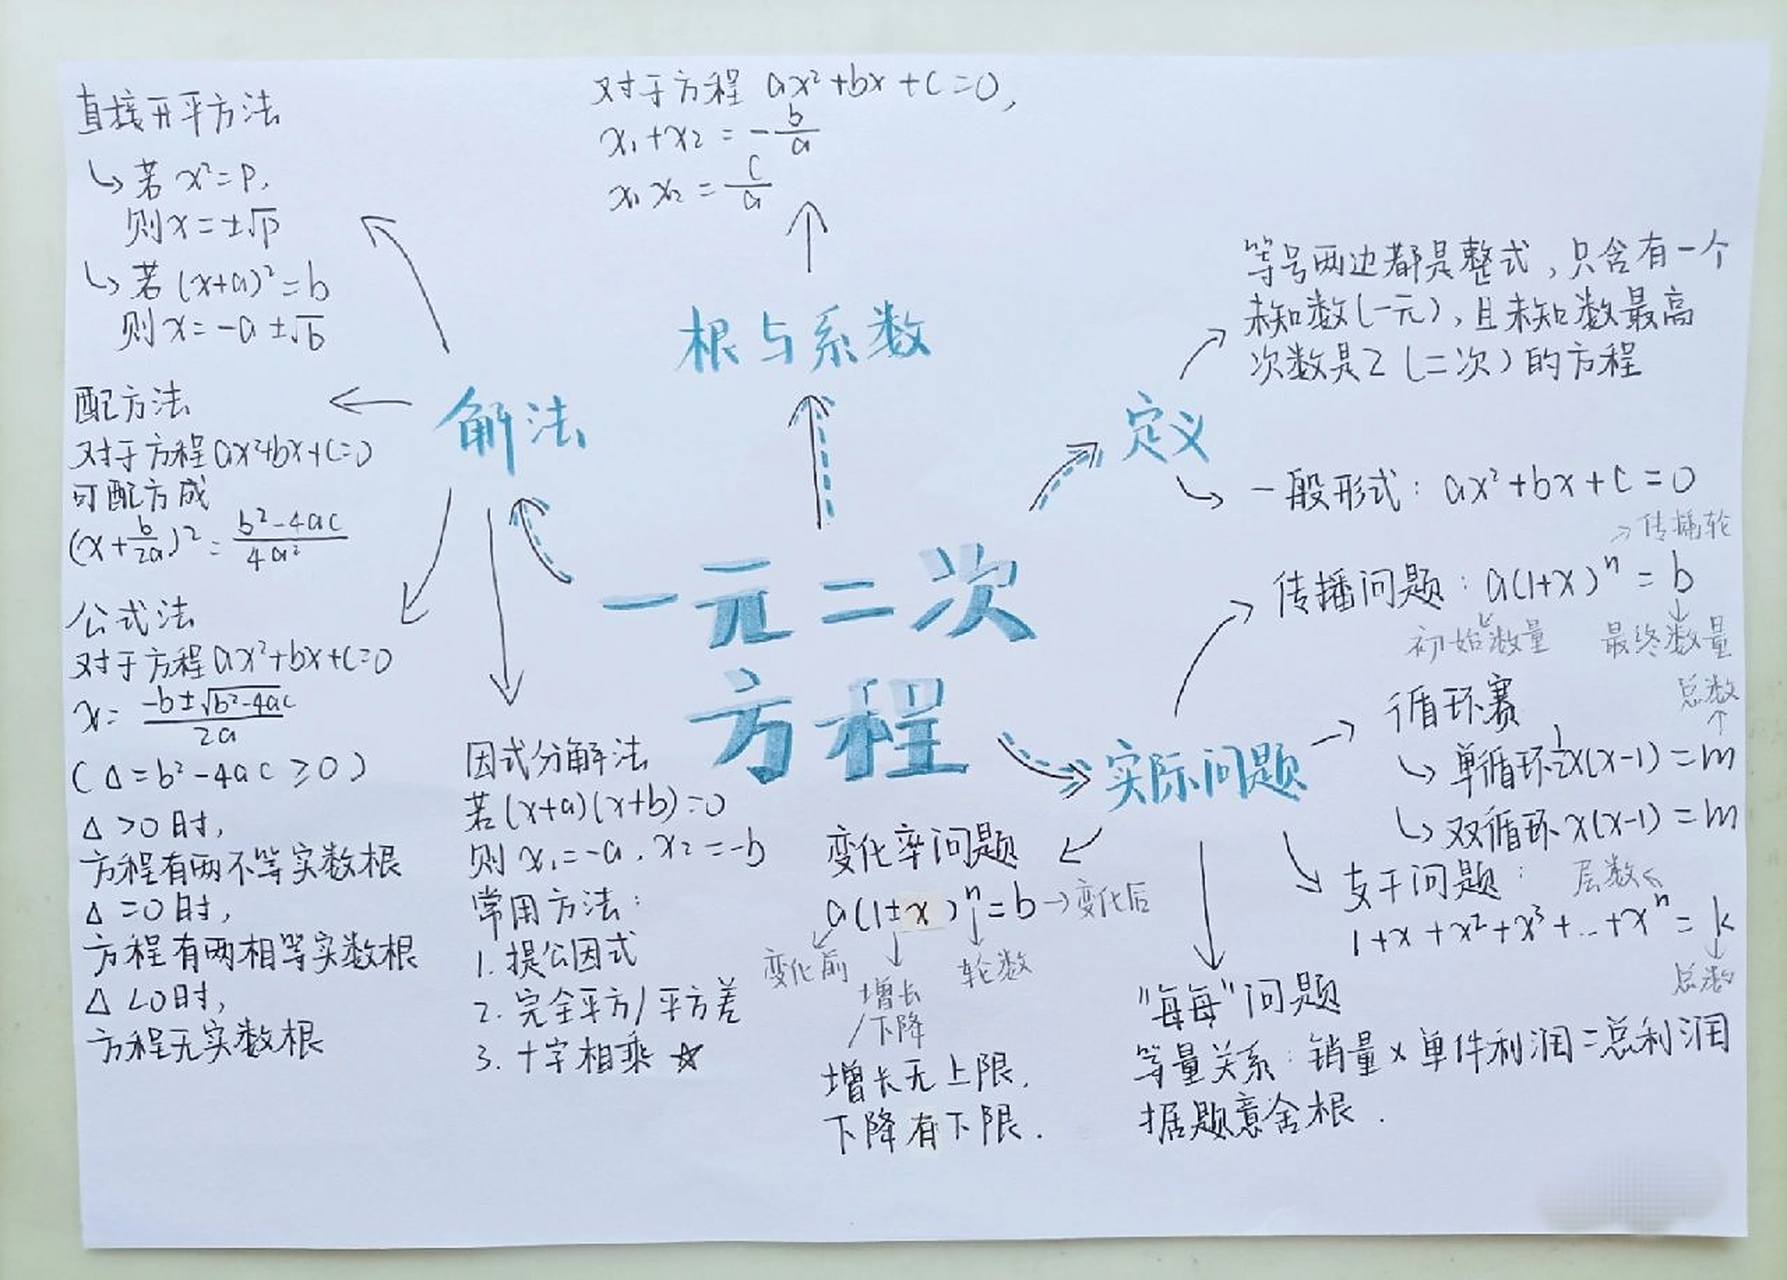 直接开平方法
↳ 若 x²=p,
则 x=±√p
↳ 若 (x+a)²=b
则 x=-a±√b
配方法
对于方程 ax²+bx+c=0
可配方成
(x+b/2a)²=(b²-4ac)/4a²
公式法
对于方程 ax²+bx+c=0
x=(-b±√b²-4ac)/2a
(Δ=b²-4ac≥0)
Δ>0时,
方程有两不等实数根
Δ=0时,
方程有两相等实数根
Δ<0时,
方程无实数根
解法
因式分解法
若(x+a)(x+b)=0
则 x₁=-a, x₂=-b
常用方法:
1. 提公因式
2. 完全平方/平方差
3. 十字相乘 ☆
对于方程 ax²+bx+c=0,
x₁+x₂=-b/a
x₁x₂=c/a
根与系数
一元二次
方程
定义
等号两边都是整式,只含有一个
未知数(一元),且未知数最高
次数是2(二次)的方程
一般形式: ax²+bx+c=0
实际问题
→传播轮
传播问题: a(1+x)ⁿ=b
初始数量 最终数量
循环赛
总数
↳ 单循环 ½x(x-1)=m
↳ 双循环 x(x-1)=m
支干问题: 层数
1+x+x²+x³+...+xⁿ=k
总数
"每每"问题
等量关系:销量×单件利润=总利润
据题意舍根.
变化率问题
a(1±x)ⁿ=b→变化后
变化前 轮数
增长
/下降
增长无上限,
下降有下限.